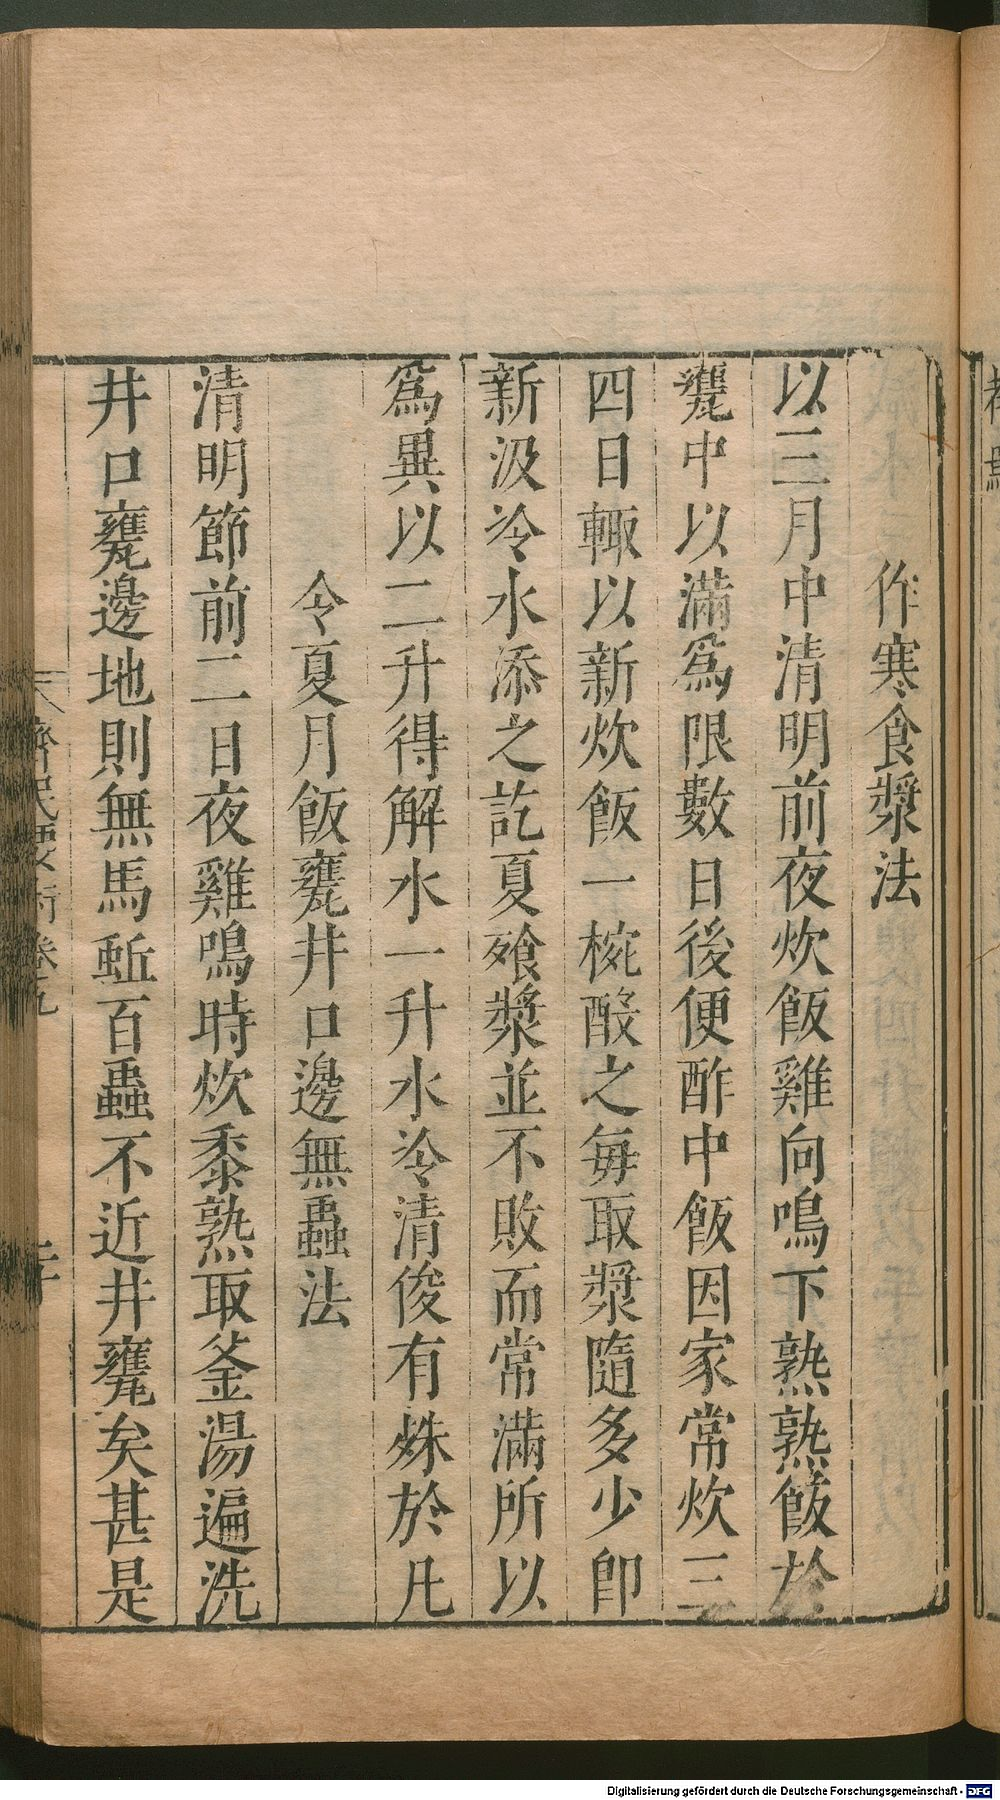 作寒食漿法
以三月中清明前夜炊飯雞向鳴下熟熟飯於
甕中以滿爲限數日後便酢中飯因家常炊三
四日輙以新炊飯一椀酘之每取漿隨多少即
新汲冷水添之訖夏飱漿並不敗而常滿所以
爲異以二升得解水一升水冷清俊有殊於凡
令夏月飯甕井口邊無蟲法
清明節前二日夜雞鳴時炊黍熟取釜湯遍洗
井口甕邊地則無馬蚿百蟲不近井甕矣甚是
齊民要術卷九
二十
Digitalisierung gefördert durch die Deutsche Forschungsgemeinschaft - DFG